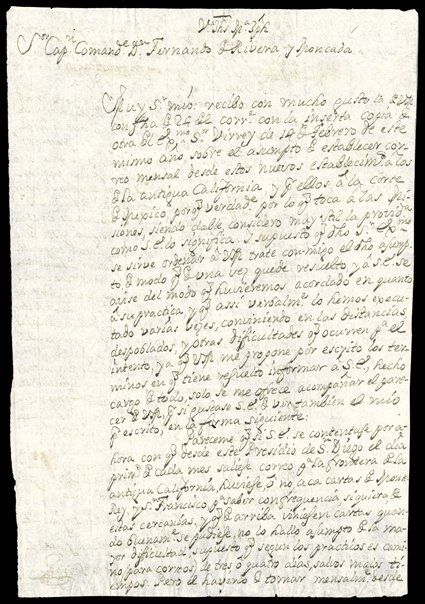 V. Jhs. Mª Jph.
Sor Capn Comandte Dn Fernando de Rivera y Moncada.
Muy Sr mio: recibo con mucho gusto la de Vm
con fha de 24 del corrte con la inserta copia de
otra del Exmo Sr Virrey de 14 de febrero de este
mismo año, sobre el asumpto de establecer cor-
reo mensal desde estos nuevos establecimtos
a la antigua California y de ellos a la corte
de Mexico, porq verdade por lo q toca a las Mis-
siones, siendo dable, considero muy util la provida
como S.E. lo significa. Y supuesto q dho Sr Exmo
se sirve ordenar a Vm trate conmigo el dho asump-
to de modo q de una vez quede resuelto, y a S.E. se
avise del modo q huvieremos acordado en quanto
a su practica, y q assi verbalmte lo hemos execu-
tado varias vezes, conviniendo en las distancias,
despoblados, y otras dificultades q ocurren pª el
intento, ya q Vm me propone por escrito los ter-
minos en q tiene resuelto informar a S.E., hecho
cargo de todo, solo se me ofrece acompañar el pare-
cer de Vm, pr si gustase S.E. de vir tambien el mio
pr escrito, en la forma siguiente:
Pareceme q si S.E. se contentase por a-
hora con q desde este Presidio de Sn Diego el dia
primo de cada mes saliese correo pª la frontera de la
antigua California huviese o no aca cartas de Monte
Rey y Sn Francisco pª saber con frequencia siquiera de
estas cercanias, y q de arriba viniesen cartas quan-
do buenamte se pudiese, no lo hallo asumpto de la ma-
yor dificultad, supuesto q segun los practicos es cami-
no para correos, de tres o quatro dias, salvos malos ti-
empos. Pero el haverlo de tomar mensalmte desde